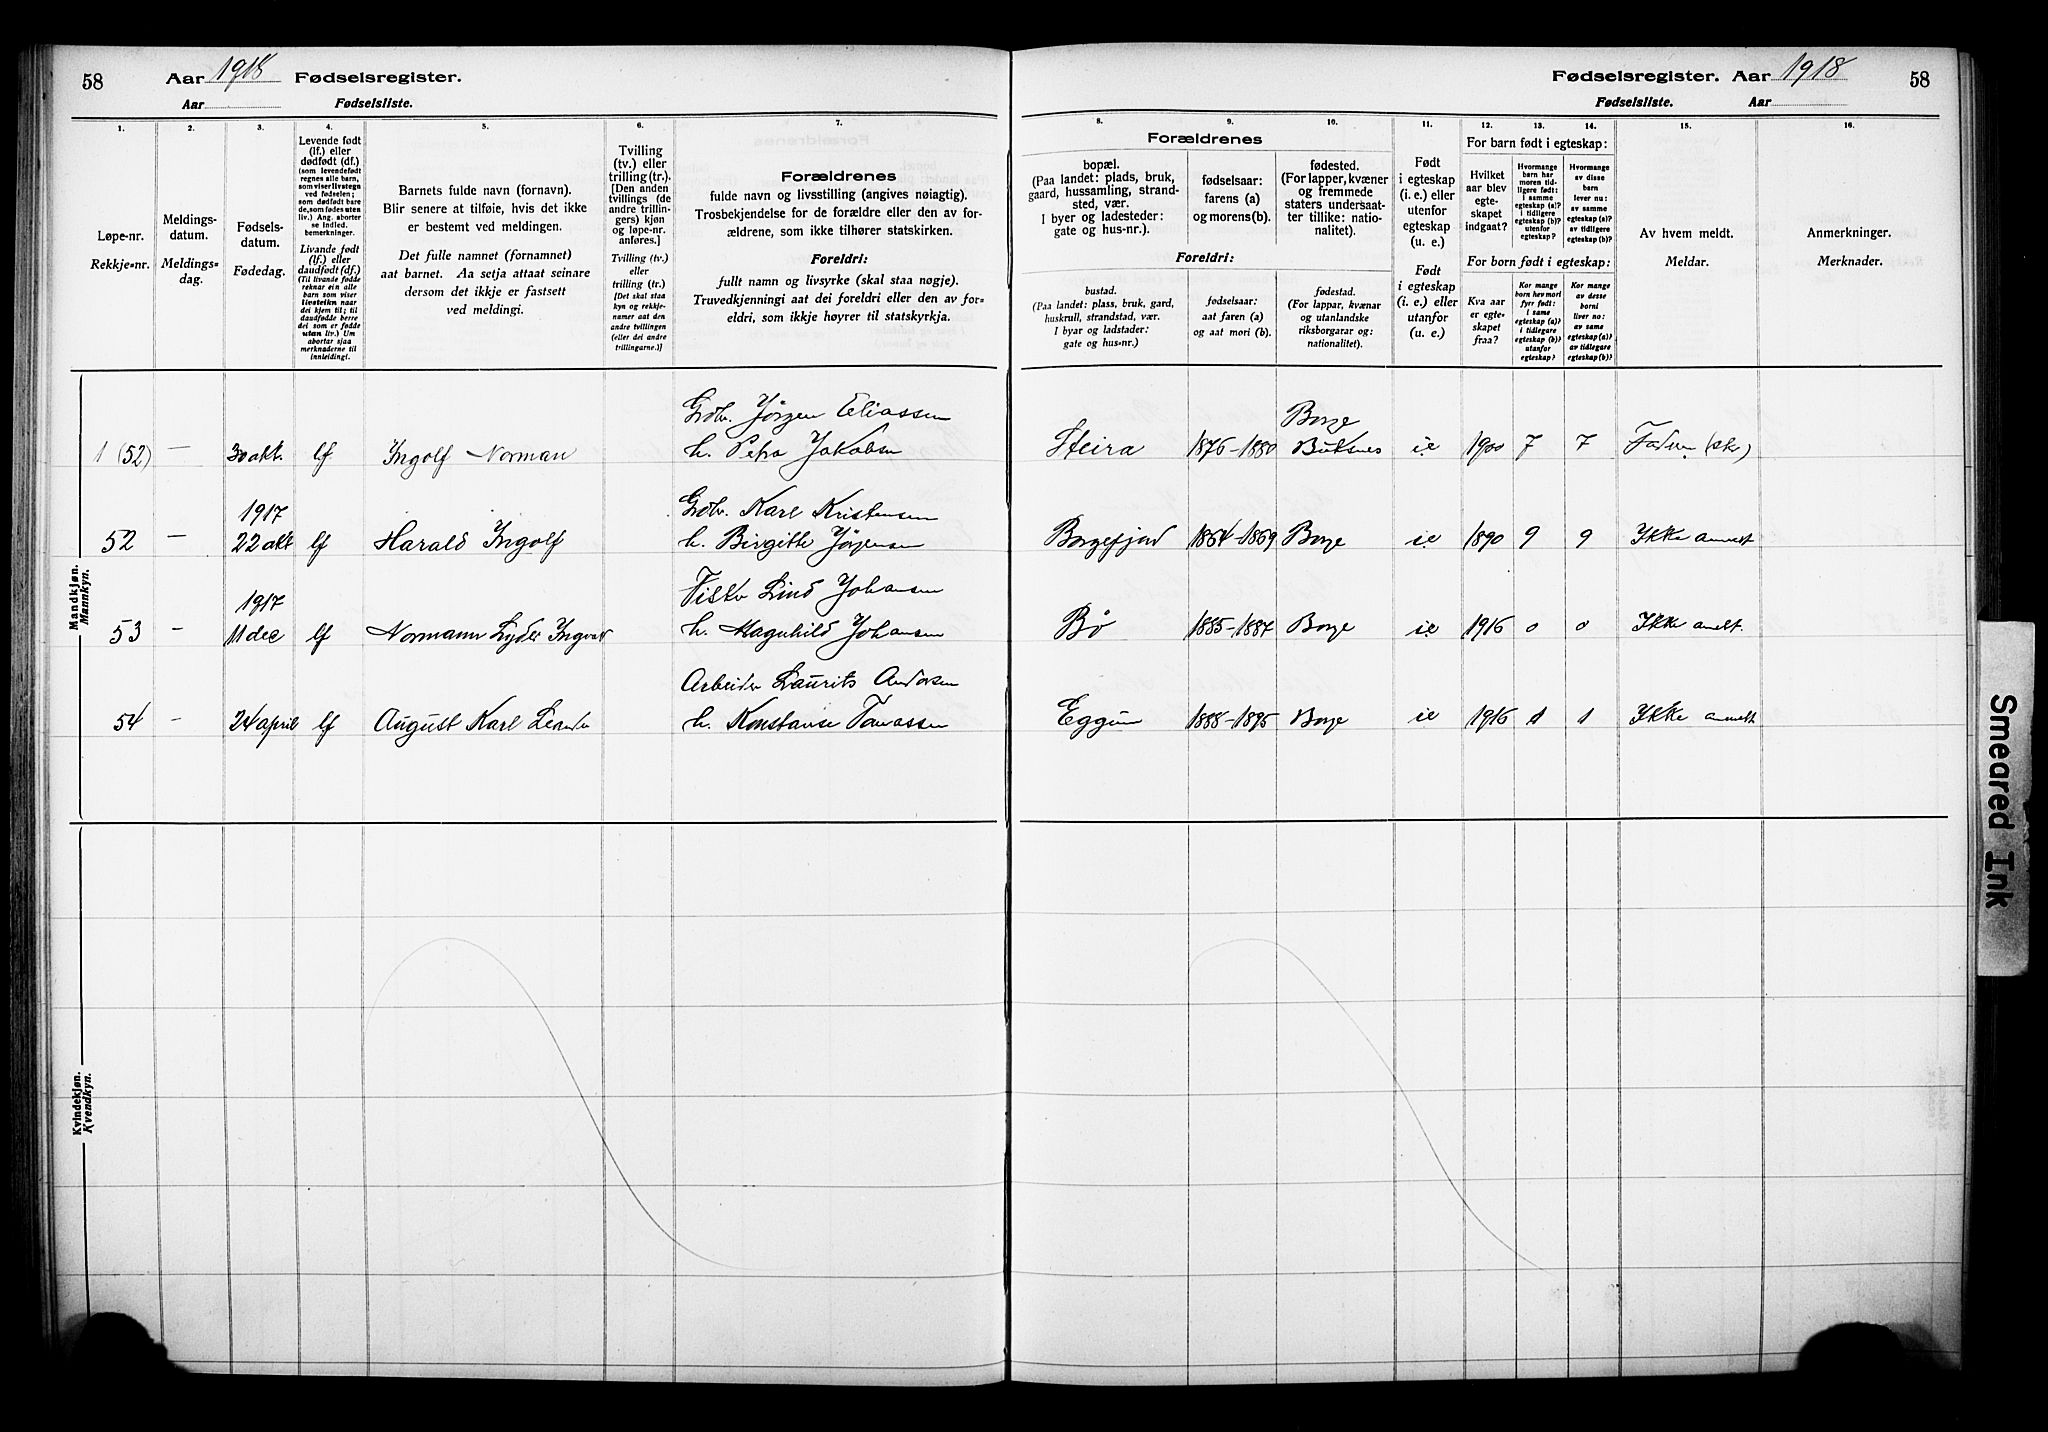 58 Aar 1918 Fødselsregister.
Aar Fødselsliste.
1. 2. 3. 4. 5. 6. 7.
Løpe-nr.
Rekkje=nr.
Meldings-
datum.
Meldings=
dag.
Fødsels-
datum.
Fødedag.
Levende født
(lf.) eller
dødfødt (df.)
(som levendefødt
regnes alle barn,
som viser livstegn
ved fødselen;
som dødfødt bare
de, som fødes uten
liv.) Ang. aborter
se indled.
bemerkninger.
Livande født
(lf.) eller
daudfødt (df.)
(Til livande fødde
reknar ein alle
barn som viser
livsteikn naar
dei kjem til; til
daudfødde berre
dei som er fødde
utan liv.) Um
abortar sjaa
merknaderne til
innleidingi.
Barnets fulde navn (fornavn).
Blir senere at tilføie, hvis det ikke
er bestemt ved meldingen.
Det fulle namnet (fornamnet)
aat barnet. Aa setja attaat seinare
dersom det ikkje er fastsett
ved meldingi.
Tvilling
(tv.) eller
trilling (tr.).
[Den anden
tvillings (de
andre trillin-
gers) kjøn
og løpe-nr.
anføres.]
Tvilling (tv.)
eller
trilling (tr.)
[Det skal staa
kyn og rekkje-
numer aat den
andre tvillingen
(eller dei andre
trillingarne.)]
Forældrenes
fulde navn og livsstilling (angives nøiagtig).
Trosbekjendelse for de forældre eller den av for-
ældrene, som ikke tilhører statskirken.
Foreldri:
fullt namn og livsyrke (skal staa nøgje).
Truvedkjenningi aat dei foreldri eller den av for=
eldri, som ikkje høyrer til statskyrkja.
Mandkjøn.
Mannkyn.
Gbr. Jørgen Eliassen
1 (52) — 30 okt. lf Ingolf Norman h. Petra Jakobsen
1917 Gbr. Karl Kristensen
52 — 22 okt lf Harald Ingolf h. Birgitte Jørgensen
1917 Fisker Lind Johansen
53 — 11 dec lf Normann Lyder Ingvar h. Magnhild Johansen
Arbeider Laurits Andersen
54 — 24 april lf August Karl Leander h. Konstanse Tomassen
Kvindekjøn.
Kvendkyn.
Fødselsregister. Aar 1918 58
Fødselsliste. Aar
8. 9. 10. 11. 12. 13. 14. 15. 16.
Forældrenes
bopæl.
(Paa landet: plads, bruk,
gaard, hussamling, strand-
sted, vær.
I byer og ladesteder:
gate og hus-nr.).
fødselsaar:
farens (a)
og morens (b).
fødested.
(For lapper, kvæner
og fremmede
staters undersaat-
ter tillike: natio-
nalitet).
Foreldri:
bustad.
(Paa landet: plass, bruk, gard,
huskrull, strandstad, vær.
I byar og ladstader:
gate og hus=nr.)
fødselsaar:
aat faren (a)
og aat mori (b).
fødestad.
(For lappar, kvænar
og utanlandske
riksborgarar og:
nationalitet).
Født
i egteskap
(i. e.) eller
utenfor
egteskap
(u. e.)
Født
i egteskap
(i. e.) eller
utanfor
(u. e.)
For barn født i egteskap:
Hvilket
aar blev
egte-
skapet
indgaat?
Hvormange
barn har
moren tid-
ligere født:
i samme
egteskap (a)?
i tidligere
egteskap (b)?
utenfor
egteskap?
Hvormange
av disse
barn
lever nu:
av samme
egteskap (a)?
av tidligere
egteskap (b)?
For born født i egteskap:
Kva aar
er egte-
skapet
fraa?
Kor mange
born hev mori
fyrr født:
i same
egteskap (a)?
i tidlegare
egteskap (b)?
utanfor
egteskap?
Kor mange
av desse
borni
liver no:
av same
egteskap (a)?
av tidlegare
egteskap (b)?
Av hvem meldt.
Meldar.
Anmerkninger.
Merknader.
Borge
Steira 1876–1880 Buksnes i.e 1900 7 7 Faderen (skr)
Borgefjord 1864–1869 Borge i.e 1890 9 9 Ikke anmeldt
Bø 1885–1887 Borge i.e 1916 0 0 Ikke anmeldt.
Eggum 1888–1895 Borge i.e 1916 1 1 Ikke anmeldt
Smeared Ink